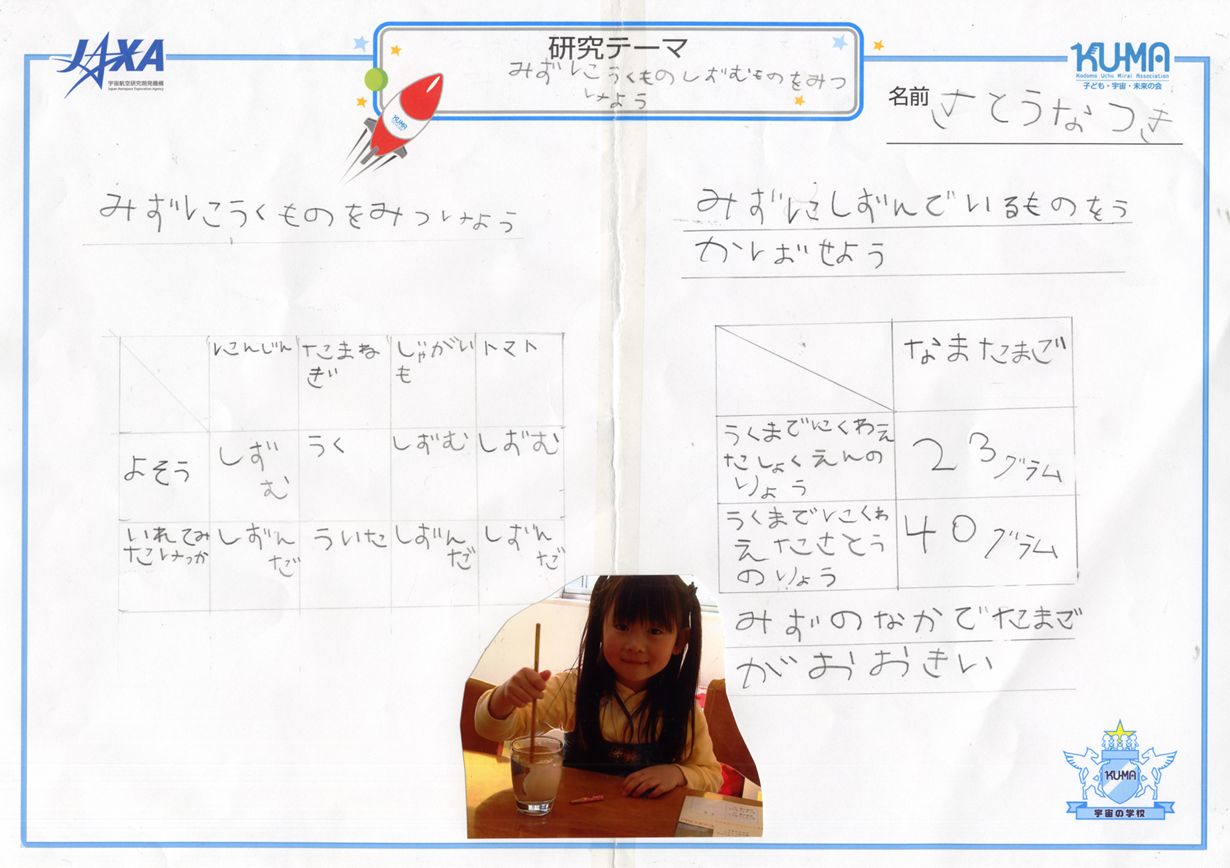 JAXA
宇宙航空研究開発機構
Japan Aerospace Exploration Agency
研究テーマ
みずにうくものしずむものをみつ
けよう
KUMA
KUMA
Kodomo Uchu Mirai Association
子ども・宇宙・未来の会
名前 さとうなつき
みずにうくものをみつけよう
にんじん たまねぎ じゃがいも トマト
よそう しずむ うく しずむ しずむ
いれてみたけっか しずんだ ういた しずんだ しずんだ
みずにしずんでいるものをう
かばせよう
なまたまご
うくまでにくわえ
たしょくえんの
りょう
23グラム
うくまでにくわ
えたさとう
のりょう
40グラム
みずのなかでたまご
がおおきい
KUMA
宇宙の学校